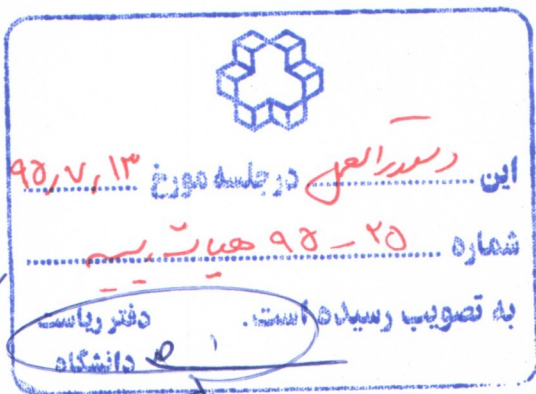 این دستورالعمل در جلسه مورخ ۹۵٫۷٫۱۳
شماره ۲۵ - ۹۵ هیات رییسه
به تصویب رسیده است.
دفتر ریاست
دانشگاه